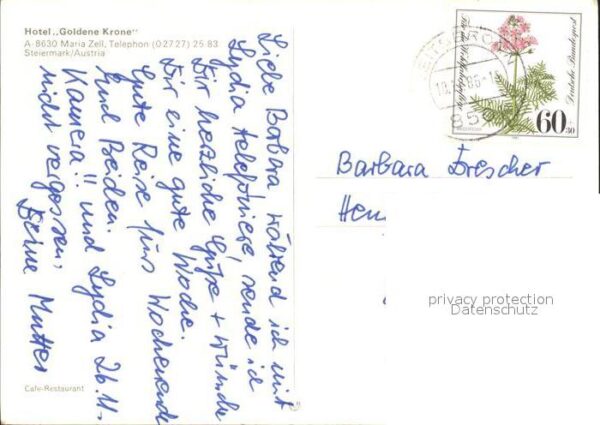 Hotel „Goldene Krone"
A-8630 Maria Zell, Telephon (0 27 27) 25 83
Steiermark/Austria
Liebe Barbara während ich mit
Lydia telefoniere, sende ich
Dir herzliche Grüße + wünsche
Dir eine gute Woche.
Gute Reise fürs Wochenende
Euch Beiden.
Kamera!! und Lydia 26.11.
nicht vergessen,
Deine Mutter
Cafe-Restaurant
Deutsche Bundespost
60
+30
85
Barbara Drescher
privacy protection
Datenschutz